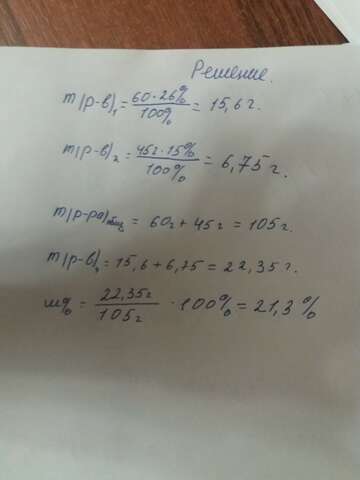 Решение.
m(р-в)₁ = 60·26% / 100% = 15,6 г.
m(р-в)₂ = 45г·15% / 100% = 6,75 г.
m(р-ра)общ = 60г + 45г = 105 г.
m(р-в) = 15,6 + 6,75 = 22,35 г.
= 22,35г / 105г · 100% = 21,3 %